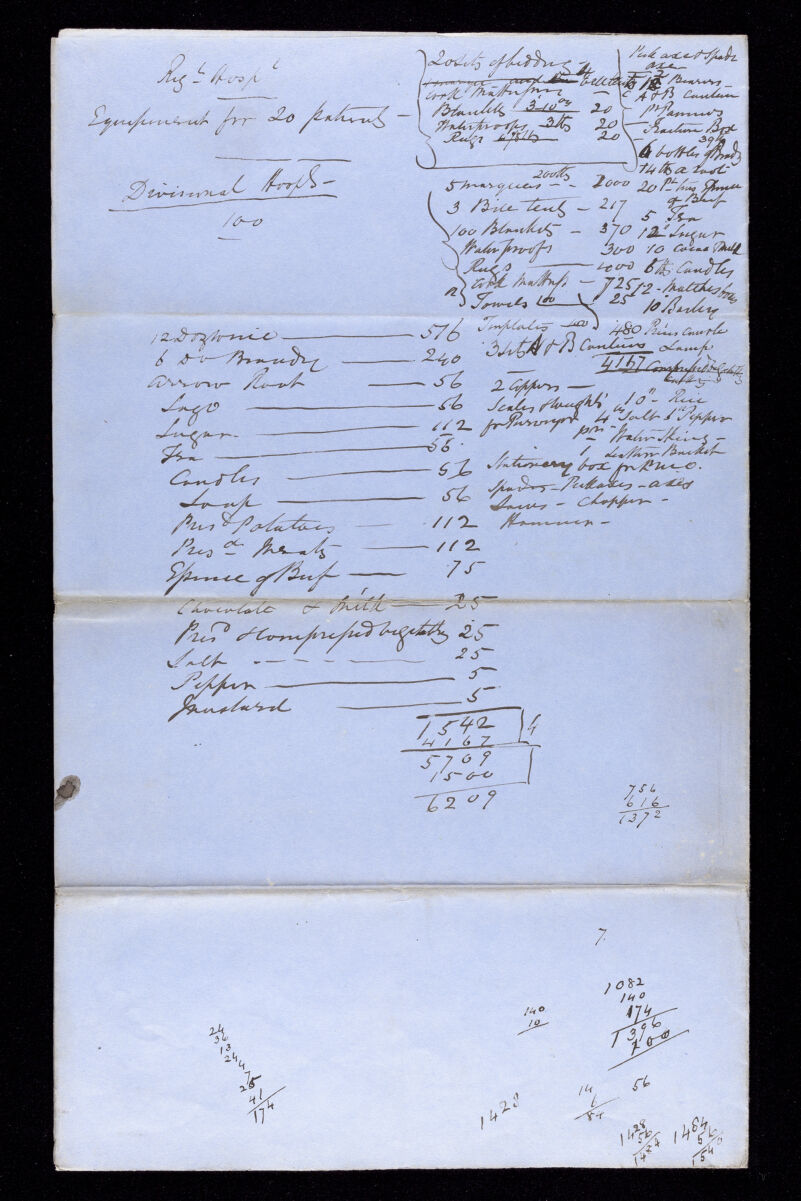 Regl Hospl
Equipment for 20 patients -
20 sets of bedding -
Cork Mattresses
Blankets 3 10oz 20
Waterproofs 3 lbs 20
Rugs 20
Pick axe & Spade
axe
12 Bearers -
A & B Canteen
pr Panniers
- Fracture Box
6 bottles of Brandy
14 lbs a root
20 Pt tins Essence
of Beef
5 Tea
12 Sugar
10 cocoa & milk
6 lbs Candles
12 - Matches boxes
10 Barley
Divisional Hospls -
100
200 lbs
5 marquees - - 2000
3 Bell tents - 217
100 Blankets - 370
Waterproofs 300
Rugs 1000
Cork Mattress - 725
12 Towels 100 25
Tinplates 100
480 Price's Candle
Lamp
3 sets A & B Canteens
4167 Compressed Vegetables
2 Coppers -
Scales & weights
for Purveyor
10" Rice
4 Salt 1" Pepper
- Water Skins -
1 Leathern Bucket
Stationery box for P.M.O.
Spades - Pickaxes - axes
Saws - Chopper -
Hammer -
12 Doz wine 576
6 Do Brandy 240
Arrow Root 56
Sago 56
Sugar 112
Tea 56
Candles 56
Soap 56
Presd Potatoes 112
Presd Meats 112
Essence of Beef 75
Chocolate & Milk 25
Presd & compressed vegetables 25
Salt - - - - 25
Pepper 5
Mustard 5
1542
4167
5709
1500
6209
756
616
1372
7.
1082
140
174
1396
200
140
10
24
36
13
24
4
7
25
41
174
1428
14
6
84
56
1428
56
1484
56